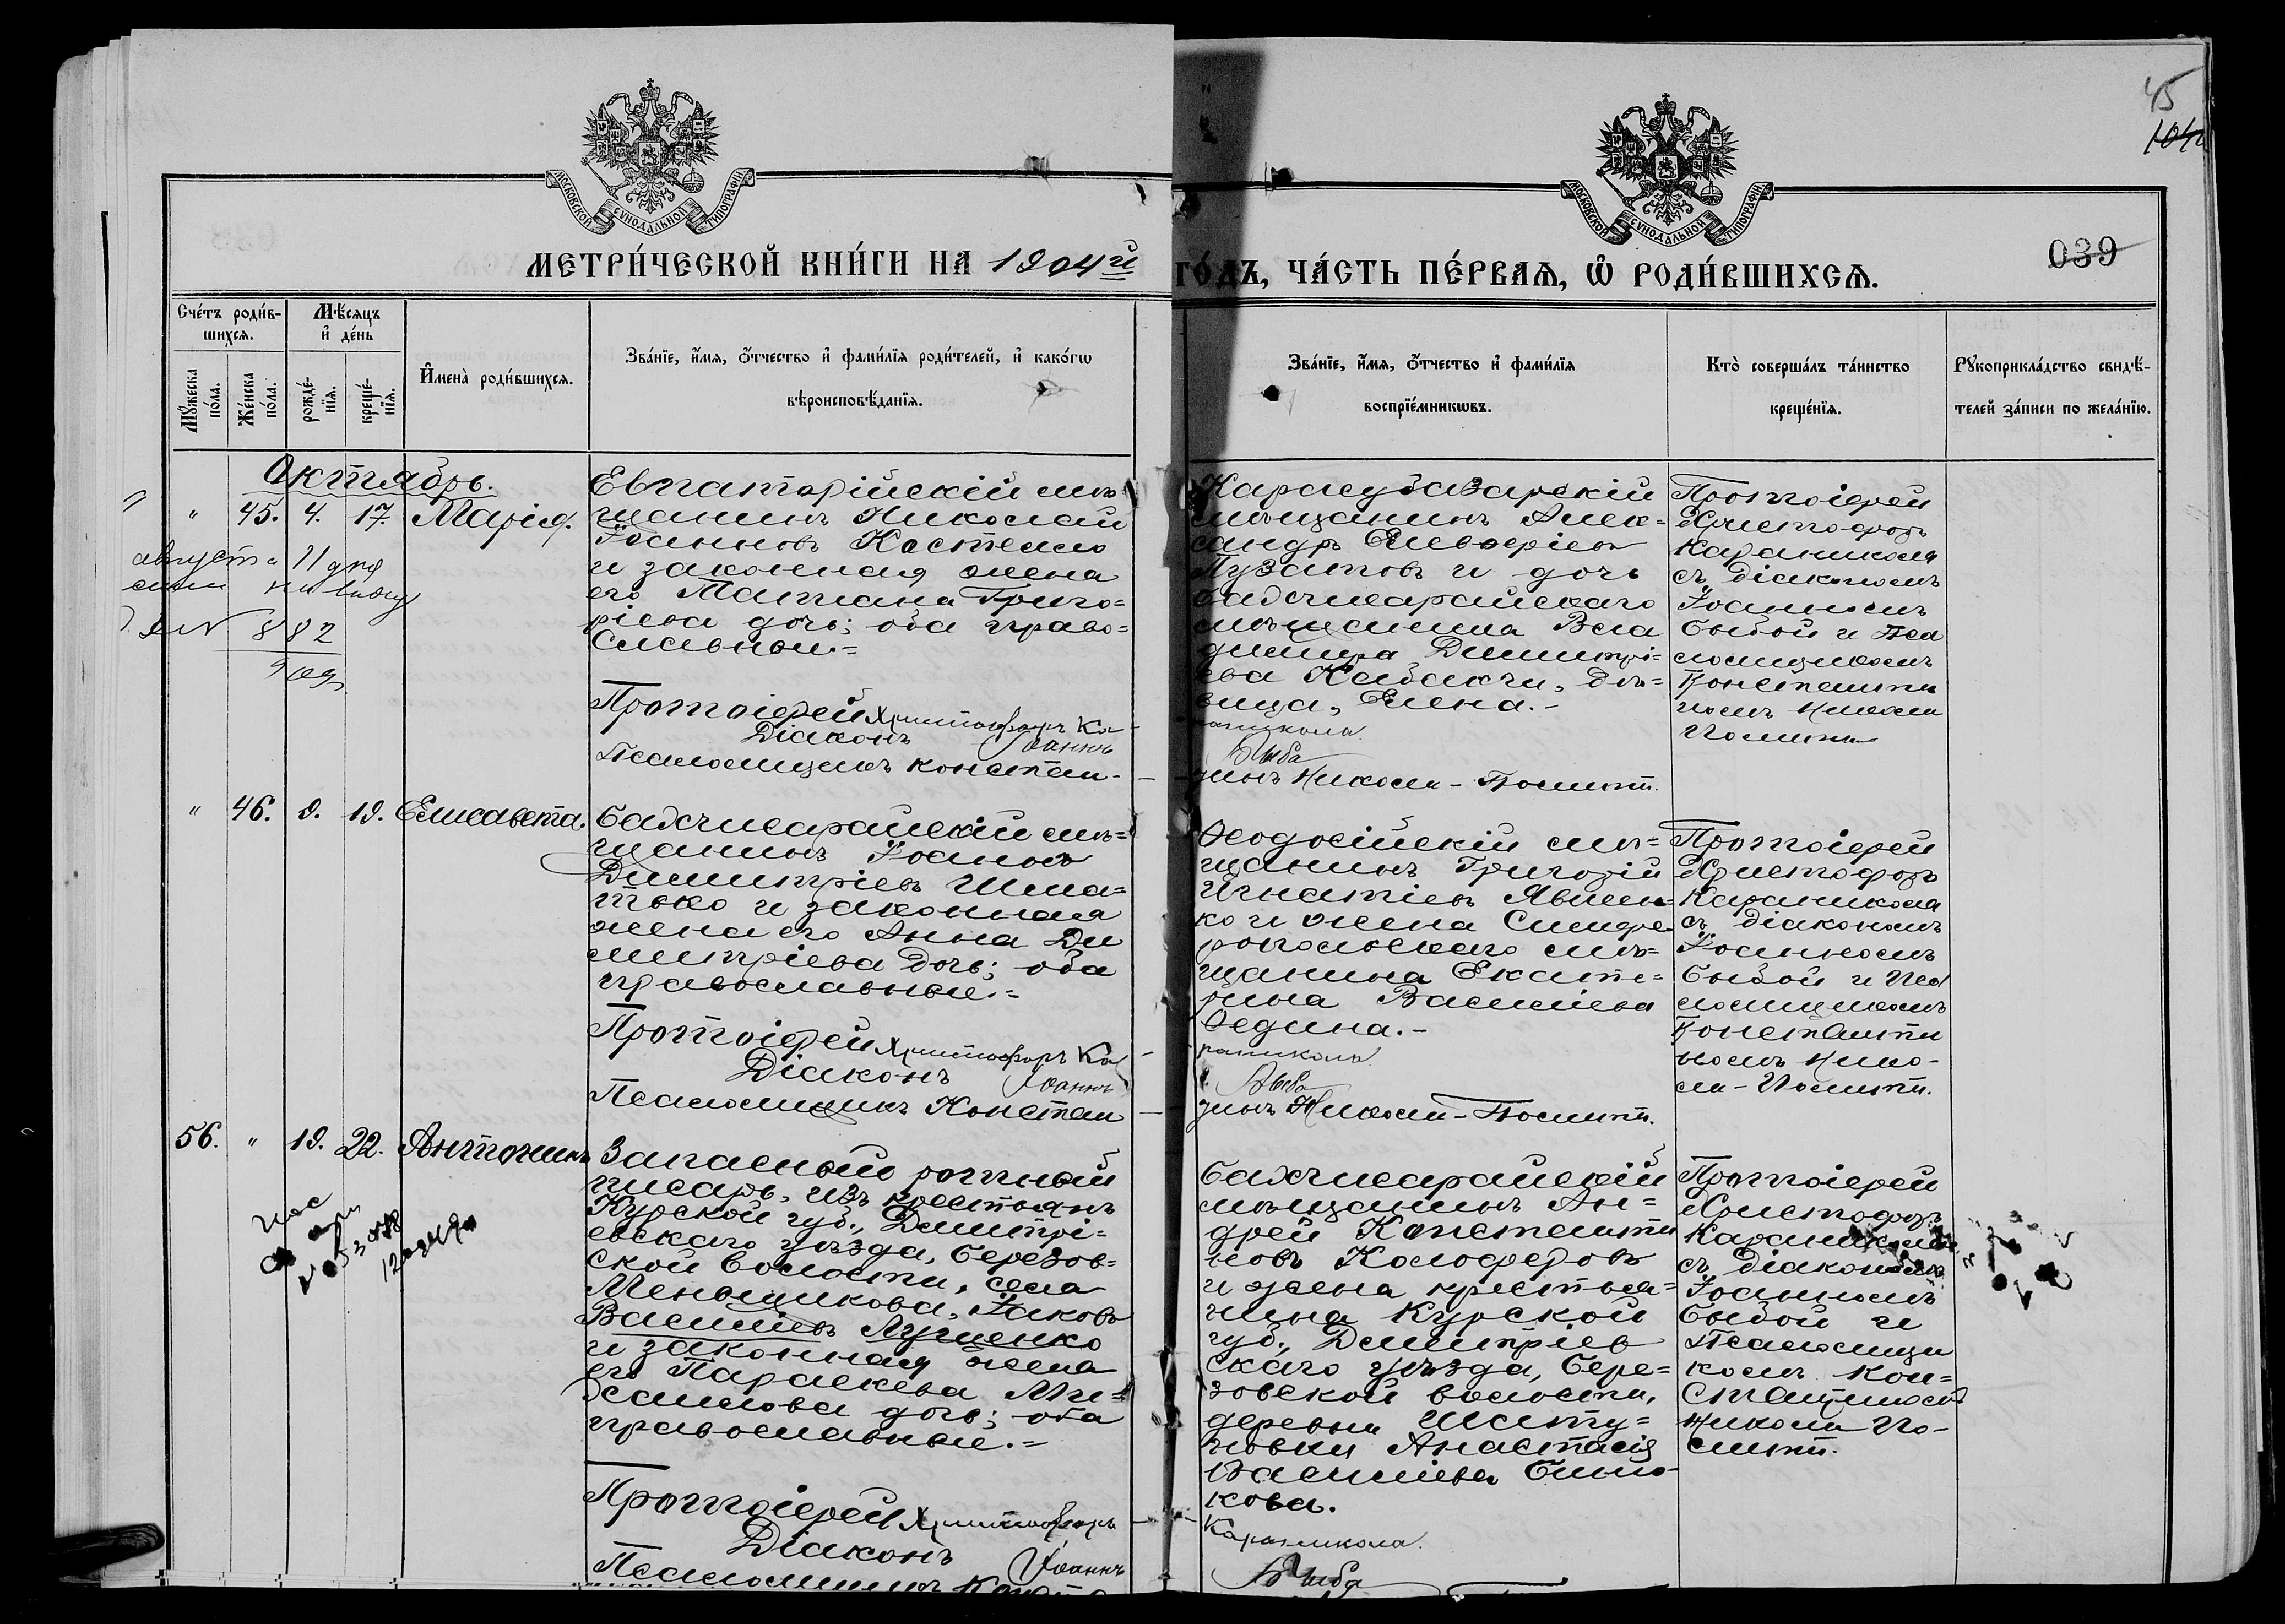 45
104
МОСКОВСКОЙ СѴНОДАЛЬНОЙ ТИПОГРАФІИ
МОСКОВСКОЙ СѴНОДАЛЬНОЙ ТИПОГРАФІИ
039
МЕТРИ́ЧЕСКОЙ КНИ́ГИ НА 1904й
ГО́ДЪ, ЧА́СТЬ ПЕ́РВАѦ, Ѽ РОДИ́ВШИХСѦ.
Сче́тъ роди́в-
шихсѧ.
Мѣ́сѧцъ
и҆ де́нь
Мꙋ́жеска по́ла.
Же́нска по́ла.
рожде́-нїѧ.
креще́-нїѧ.
И҆мена̀ роди́вшихсѧ.
Зва́нїе, и҆́мѧ, ѻ҆́тчество и҆ фами́лїѧ роди́телей, и҆ како́гѡ
вѣроисповѣ́данїѧ.
Зва́нїе, и҆́мѧ, ѻ҆́тчество и҆ фами́лїѧ
воспрїе́мникѡвъ.
Кто̀ соверша́лъ та́инство
креще́нїѧ.
Рꙋкоприкла́дство свидѣ́-
телей за́писи по жела́нїю.
Октябрь.
" 45. 4. 17. Марія.
августа 11 дня
882
Евпаторійскій мѣ-
щанинъ Николай
Іоанновъ Костенко
и законная жена
его Татіана Григо=
рьева дочь; оба право=
славные.=
Протоіерей Христофоръ Ка-
Діаконъ Іоаннъ
Псаломщикъ Констан-
Карасубазарскій
мѣщанинъ Алек=
сандръ Елевферіевъ
Пузатовъ и дочь
бахчисарайскаго
мѣщанина Вла
диміра Димитрі=
ева Кабакчи, дѣ=
вица, Елена.-
раникола
Быба
тинъ Никола-Помитъ.
Протоіерей
Христофоръ
Караникола
съ діакономъ
Іоанномъ
Быбой и Пса
ломщикомъ
Константи
номъ Никола
" 46. 9. 19. Елисавета.
Бахчисарайскій мѣ=
щанинъ Іоаннъ
Димитріевъ Шма=
тько и законная
жена его Анна Ди
митріева дочь; оба
православные.=
Протоіерей Христофоръ Ка
Діаконъ Іоаннъ
Псаломщикъ Констан
Ѳеодосійскій мѣ=
щанинъ Григорій
Игнатіевъ Явлен=
ко и жена Симфе
ропольскаго мѣ=
щанина Екате=
рина Василіева
Ѳедина.-
раникола
Быба
тинъ Никола-Помитъ.
Протоіерей
Христофоръ
Караникола
съ діакономъ
Іоанномъ
Быбой и Пса
ломщикомъ
Константи
номъ Нико-
56. " 19. 22. Антонинъ
Запасный ротный
писарь, изъ крестьянъ
Курской губ., Димитрі=
евскаго уѣзда, Березов=
ской волости, села
Меньщикова, Іаковъ
Василіевъ Луценко
и законная жена
его Параскева Ми=
хаилова дочь; оба
православные.=
Протоіерей Христофоръ
Діаконъ Іоаннъ
Псаломщикъ
Бахчисарайскій
мѣщанинъ Ан=
дрей Константи
новъ Колоферовъ
и жена крестья=
нина Курской
губ. Димитріев
скаго уѣзда, Бере=
зовской волости,
деревни
Анастасія
Василіева
кова.
Караникола.
Быба
Протоіерей
Христофоръ
Караникола
съ діакономъ
Іоанномъ
Быбой и
Псаломщи
комъ Кон=
стантиномъ
Никола По-